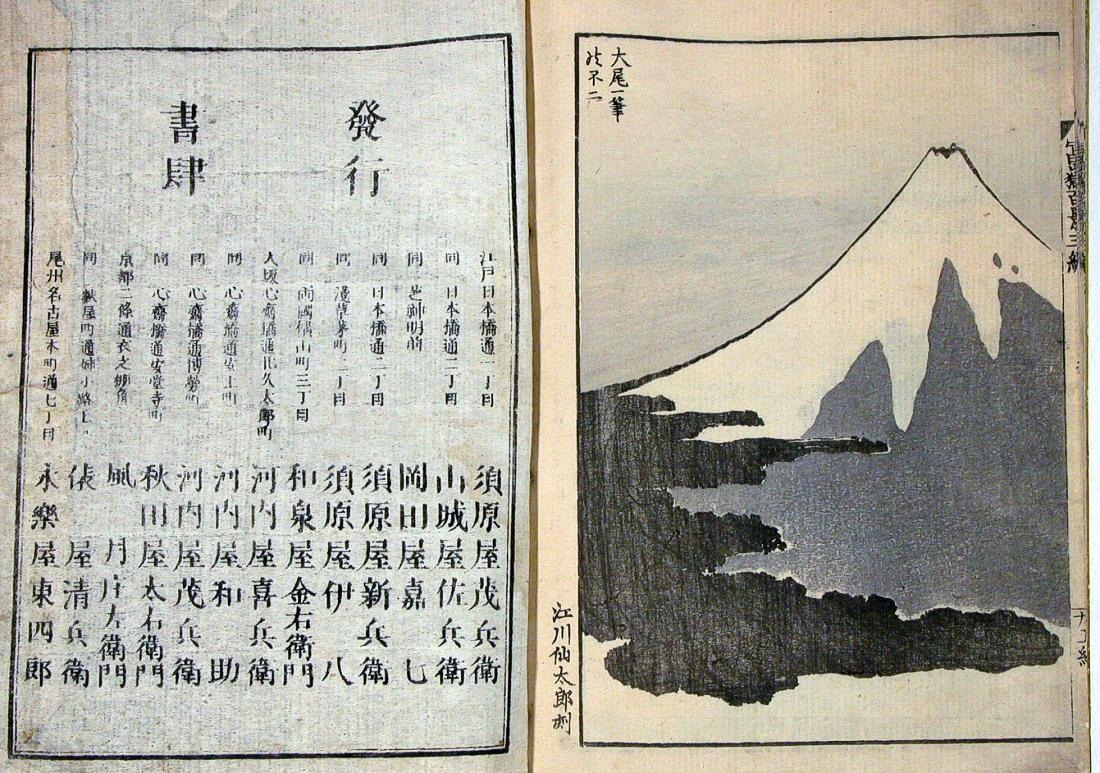 富嶽百景三編
大尾一筆
の不二
江川仙太郎刻
發行
書肆
江戸日本橋通一丁目 須原屋茂兵衛
同 日本橋通二丁目 山城屋佐兵衛
同 芝神明前 岡田屋嘉七
同 日本橋通二丁目 須原屋新兵衛
同 淺草茅町二丁目 須原屋伊八
同 両國橫山町三丁目 和泉屋金右衛門
大坂心齋橋通北久太郎町 河内屋喜兵衛
同 心齋橋通安土町 河内屋和助
同 心齋橋通博勞町 河内屋茂兵衛
同 心齋橋通安堂寺町 秋田屋太右衛門
京都二條通衣之棚角 風月庄左衛門
同 麩屋町通姉小路上ル 俵屋清兵衛
尾州名古屋本町通七丁目 永樂屋東四郎